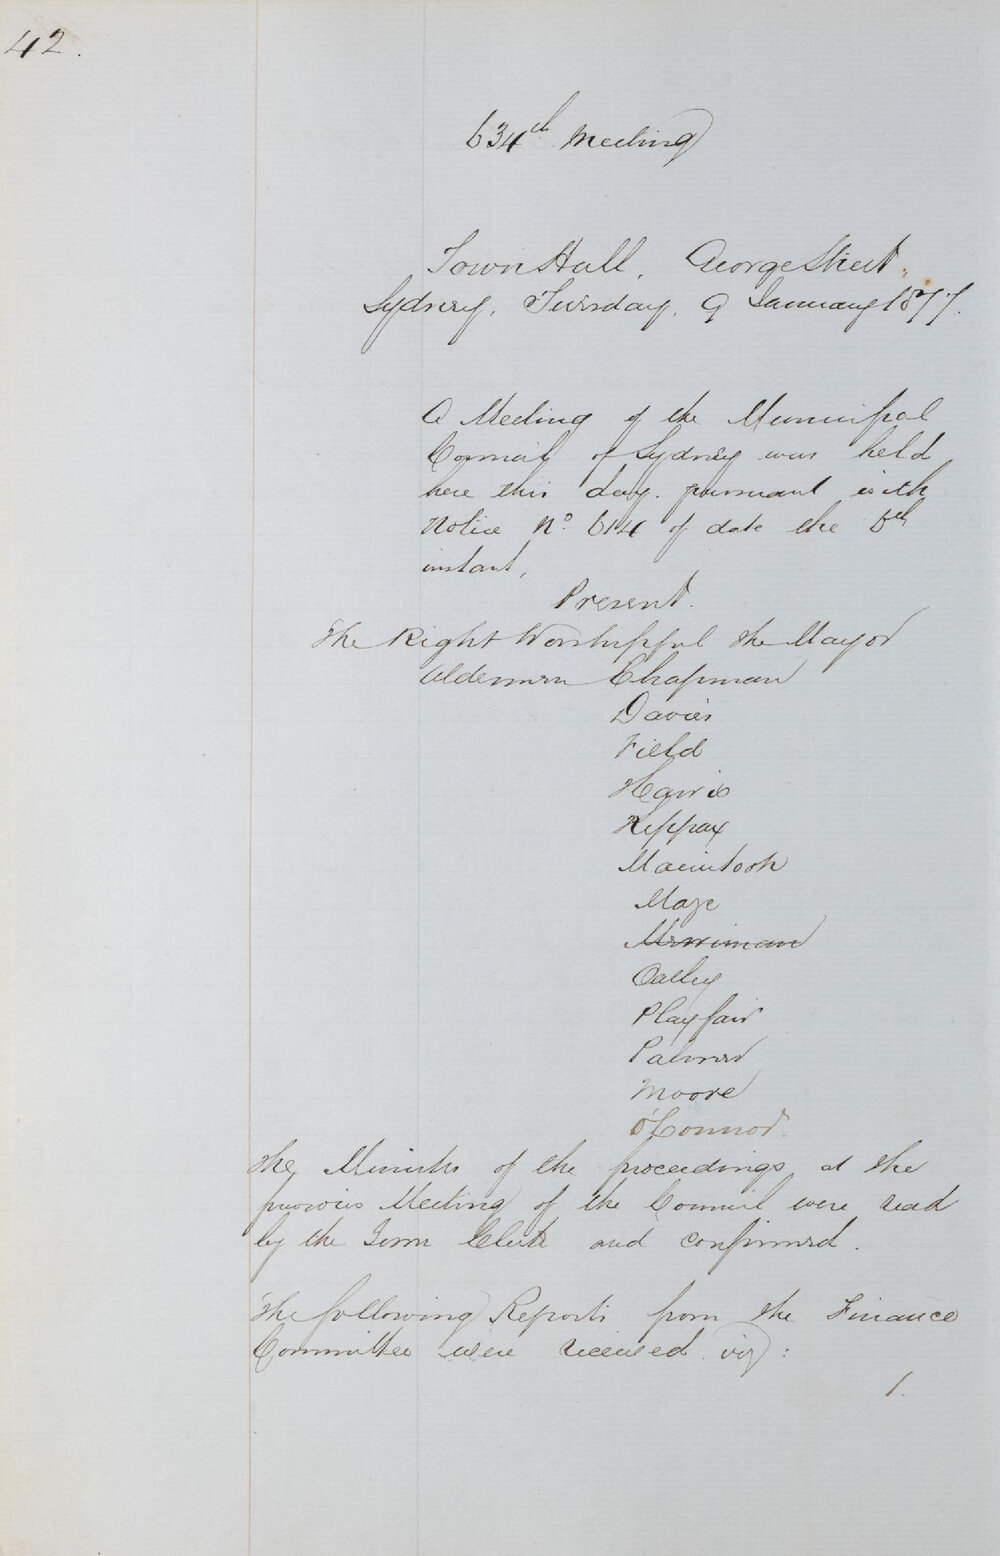 42.
634th Meeting
Town Hall, George Street.
Sydney, Tuesday, 9 January 1877.
A Meeting of the Municipal
Council of Sydney was held
here this day. pursuant with
Notice No. 614 of date the 5th
instant,
Present.
The Right Worshipful the Mayor
Aldermen Chapman
Davies
Field
Harris
Kippax
Macintosh
Maze
Merriman
Oatley
Playfair
Palmer
Moore
O'Connor.
The Minutes of the proceedings at the
previous Meeting of the Council were read
by the Town Clerk and confirmed.
The following Reports from the Finance
Committee were received viz:
1.